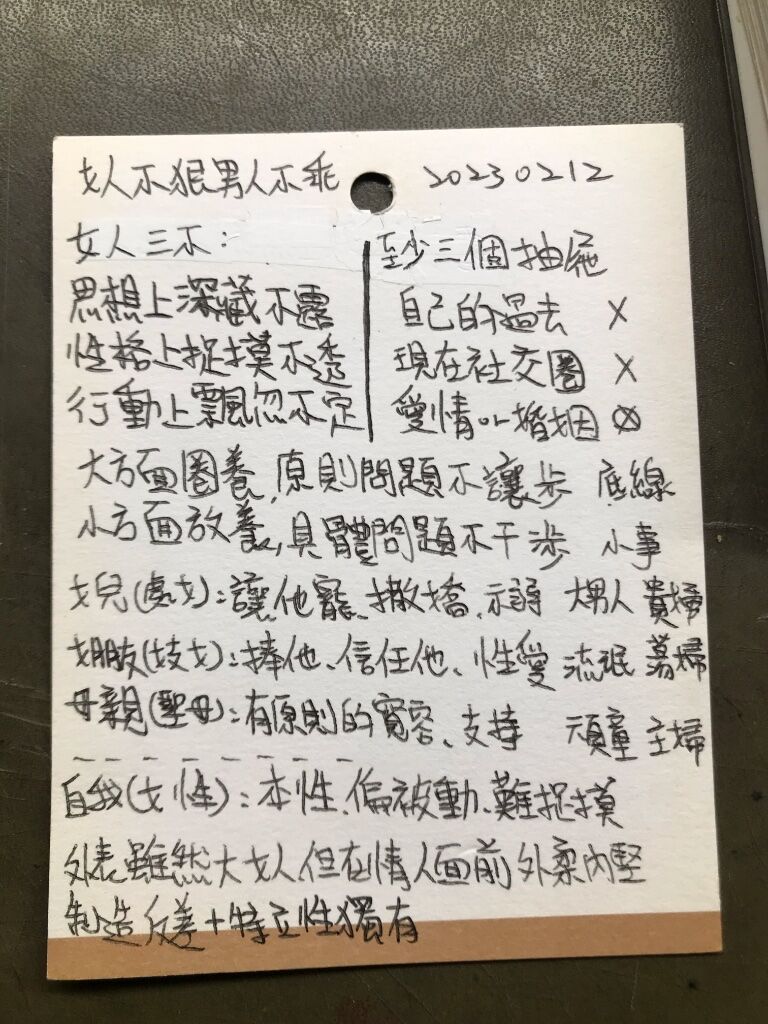 女人不狠男人不乖 20230212
女人三不:
思想上深藏不露
性格上捉摸不透
行動上飄忽不定
至少三個抽屜
自己的過去 X
現在社交圈 X
愛情or婚姻 ⊗
大方面圈養,原則問題不讓步 底線
小方面放養,具體問題不干涉 小事
女兒(處女):讓他寵、撒嬌、示弱 大男人 貴婦
女朋友(妓女):捧他、信任他、性愛 流氓 蕩婦
母親(聖母):有原則的寬容、支持 頑童 主婦
自我(女性):本性、偏被動、難捉摸
外表雖然大女人但在情人面前外柔內堅
制造反差+特立性獨有